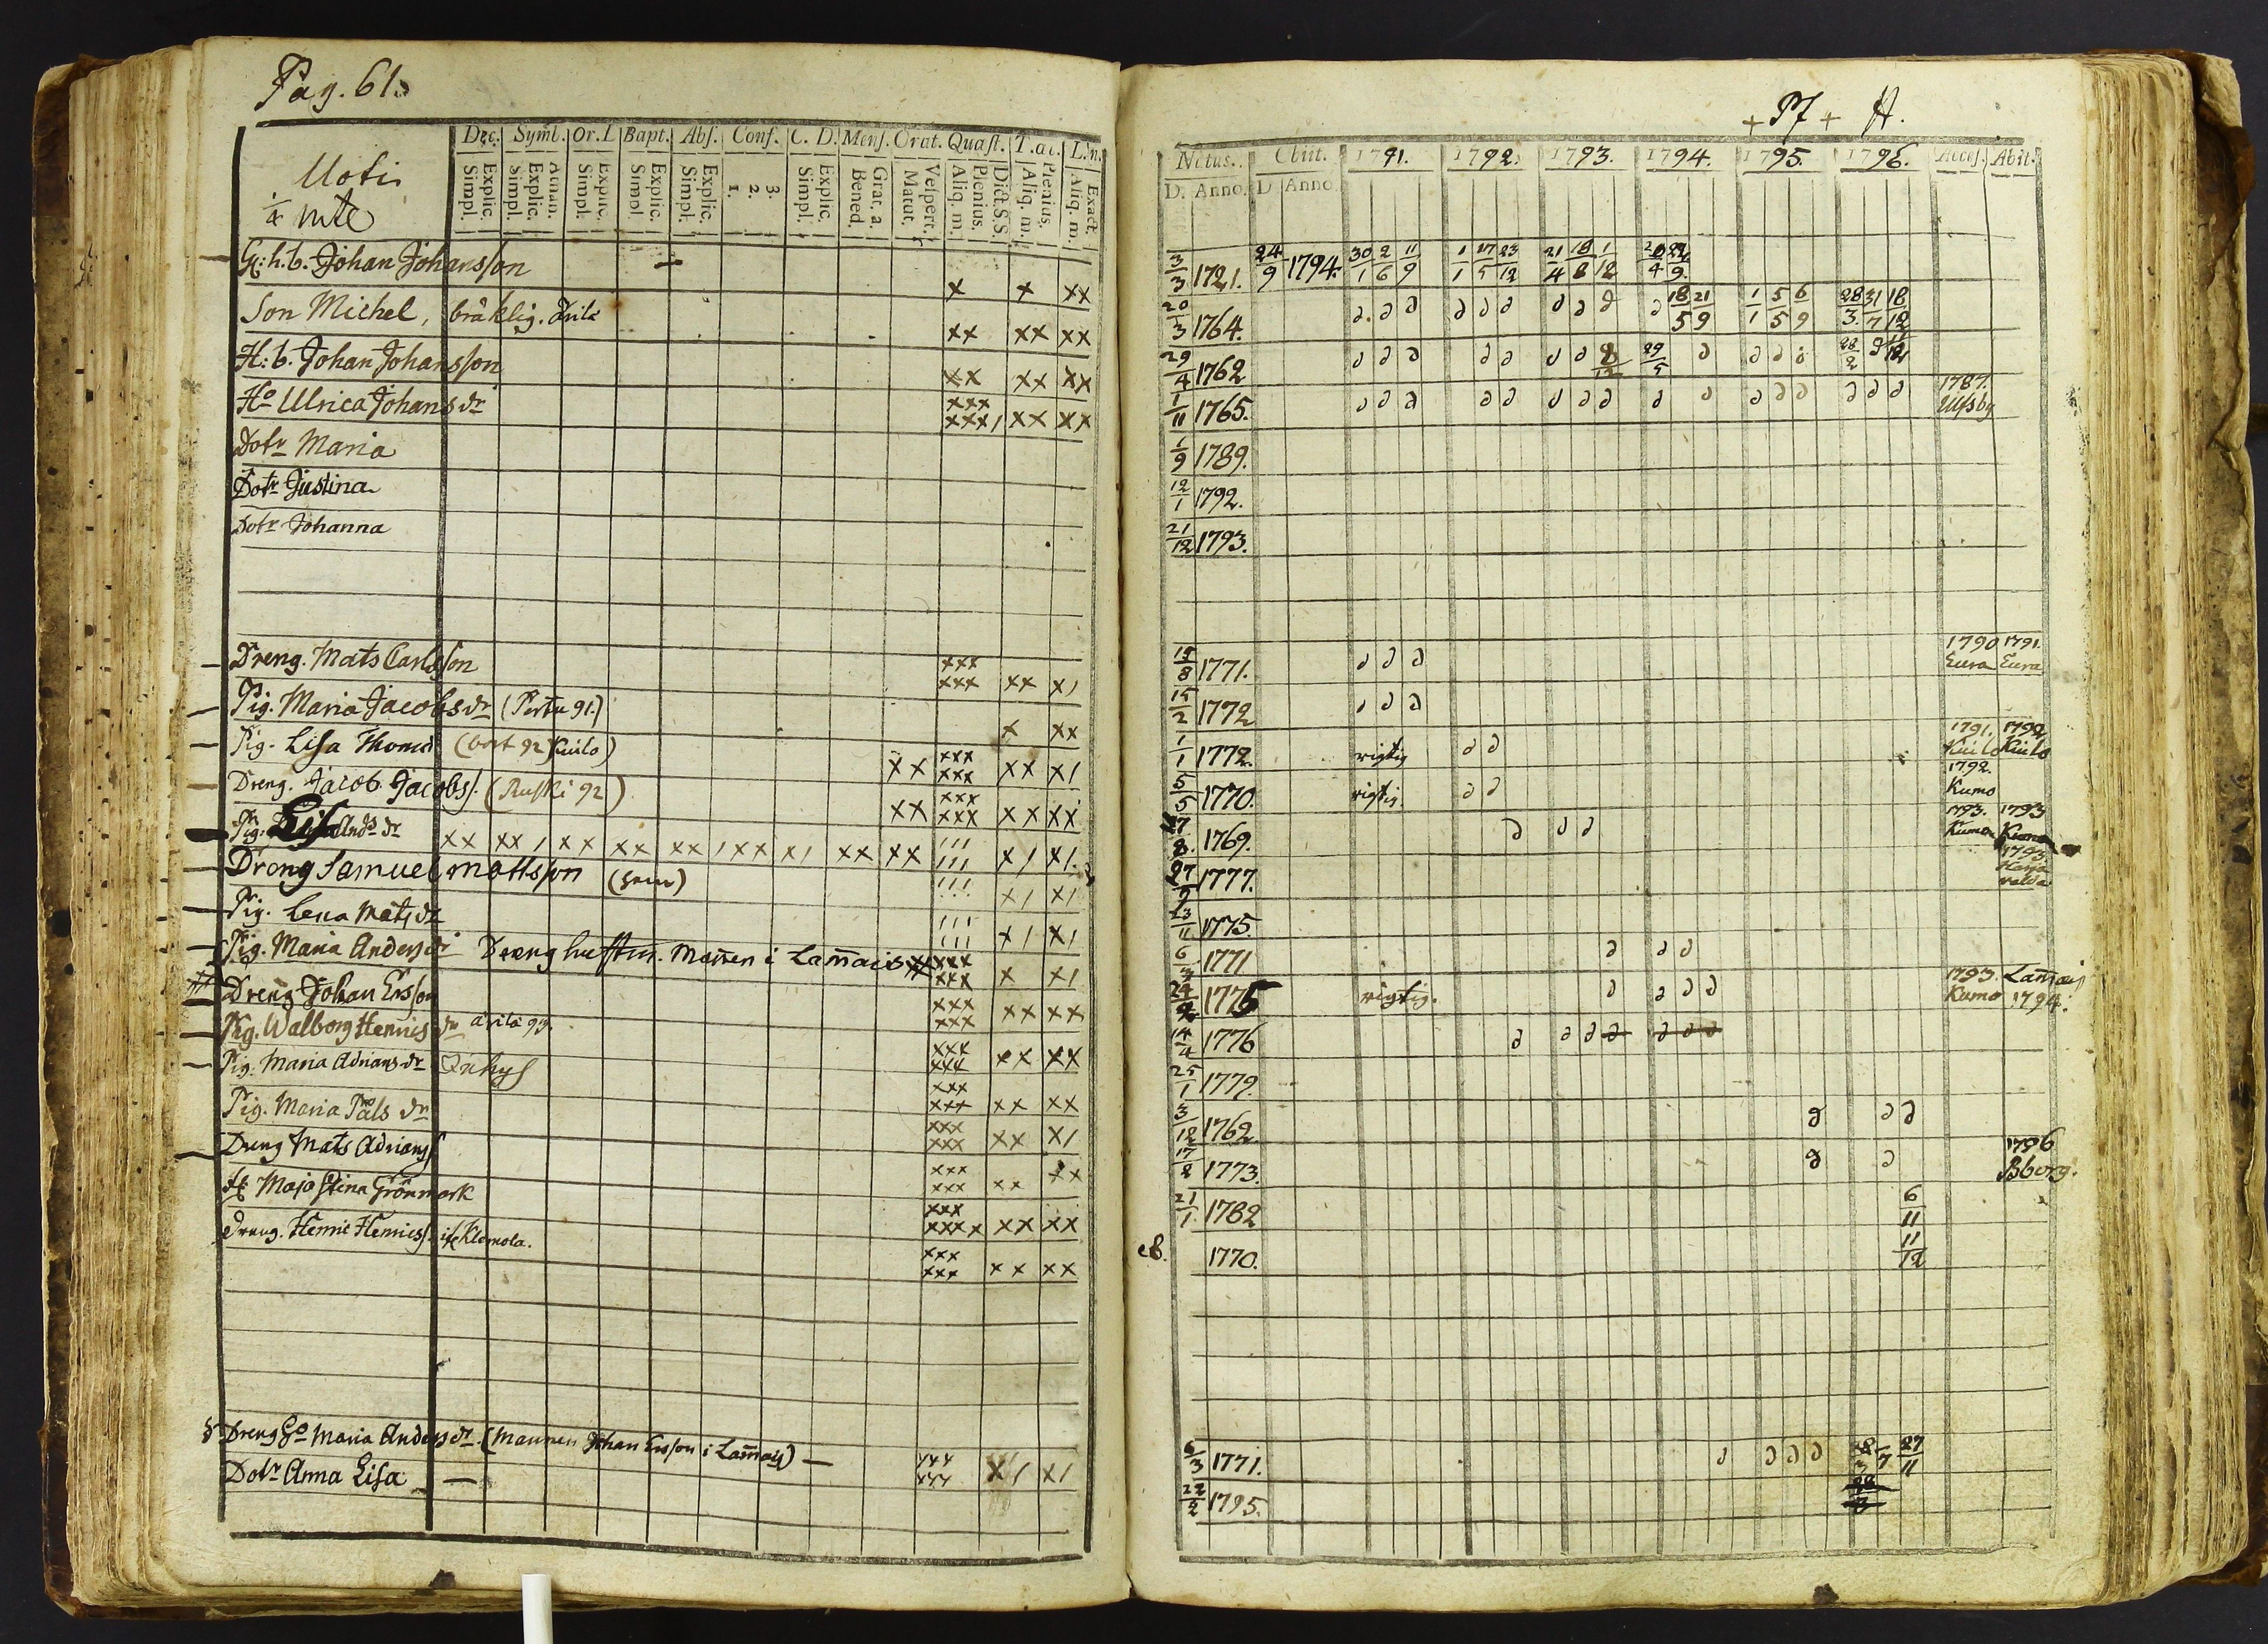 Pag. 61.
Dec. Symb. Or. L Bapt. Abs. Conf. C. D. Mens. Orat. Quæst. T. œc. L. in.
Explic. Simpl. Athan. Explic. Simpl. Explic. Simpl. Explic. Simpl. Explic. Simpl. 3. 2. 1. Explic. Simpl. Grat. a. Bened. Vespert. Matut. Dict. S. S. Plenius. Aliq. m. Plenius. Aliq. m. Exact. Aliq. m.
Uoti
G: h. b. Johan Johansson x x xx
Son Michel, bräklig. xx xx xx
H: b. Johan Johansson xx xx xx
Ho Ulrica Johans dr xxx xxx/ xx xx
Dotr Maria
Dotr Justina
Dotr Johanna
Dreng. Mats Carlsson xxx xxx xx x/
Pig. Maria Jacobs dr (Perttu 91.) x xx
Pig. Lisa Thomæ (bort 92 Kiulo) xx xxx xxx xx x/
Dreng. Jacob Jacobs. (Ruski 92) xx xxx xxx xx xx
Pig. Lisa Ands dr xx xx / xx xx xx / xx x/ xx xx /// /// x/ x/.
Dreng Samuel Mattsson /// x/ x/
Pig. Lena Mats dr /// /// x/ x/
Pig. Maria Anders dr Dreng hustru. Mannen i Lammais xxx xxx x x/
Dreng Johan Ersson xxx xxx xx xx
Pig. Walborg Hennis dr 93. xxx xxx xx xx
Pig. Maria Adrians dr xxx xxx xx xx
Pig. Maria Påls dr xxx xxx xx x/
Dreng Mats Adrianss xxx xxx xx xx
H Maja Stina Grönmark xxx xxxx xx xx
Dreng. Hennic Henniss. Klemola. xxx xxx xx xx
Dreng Ho Maria Anders dr. (Mannen Johan Ersson i Lammais) — xxx xxx x/ x/
Dotr Anna Lisa —
+ Pf + H.
Natus. Obiit. 1791. 1792. 1793. 1794. 1795. 1796. Acces. Abit.
D. Anno. D Anno
3/3 1721. 24/9 1794. 30/1 2/6 11/9 1/1 17/5 23/12 21/4 18/8 1/12 20/4 24/9.
20/3 1764. 18/5 21/9 1/1 5/5 6/9 28/3. 31/7 18/12
29/4 1762 8/12 29/5 28/2 11/12
1/11 1765. 1787. Ulfsby
1/9 1789.
12/1 1792.
21/12 1793.
15/8 1771. 1790 Eura 1791. Eura
15/2 1772
1/1 1772. rigtig 1791. Kiulo 1792 Kiulo
5/5 1770. rigtig. 1792. Kumo
27/8. 1769. 1793. Kumo 1793 Kumo
27/9 1777. 1793. Harjavalda
23/11 1775.
6/3 1771
24/2 1775 rigtig. 1793. Kumo Lammais 1794.
14/4 1776
25/1 1779.
3/12 1762
17/8 1773. 1796 Bborg.
21/1. 1782 6/11
1770. 11/12
6/3 1771. 8/3 7 27/11
22/2 1795.